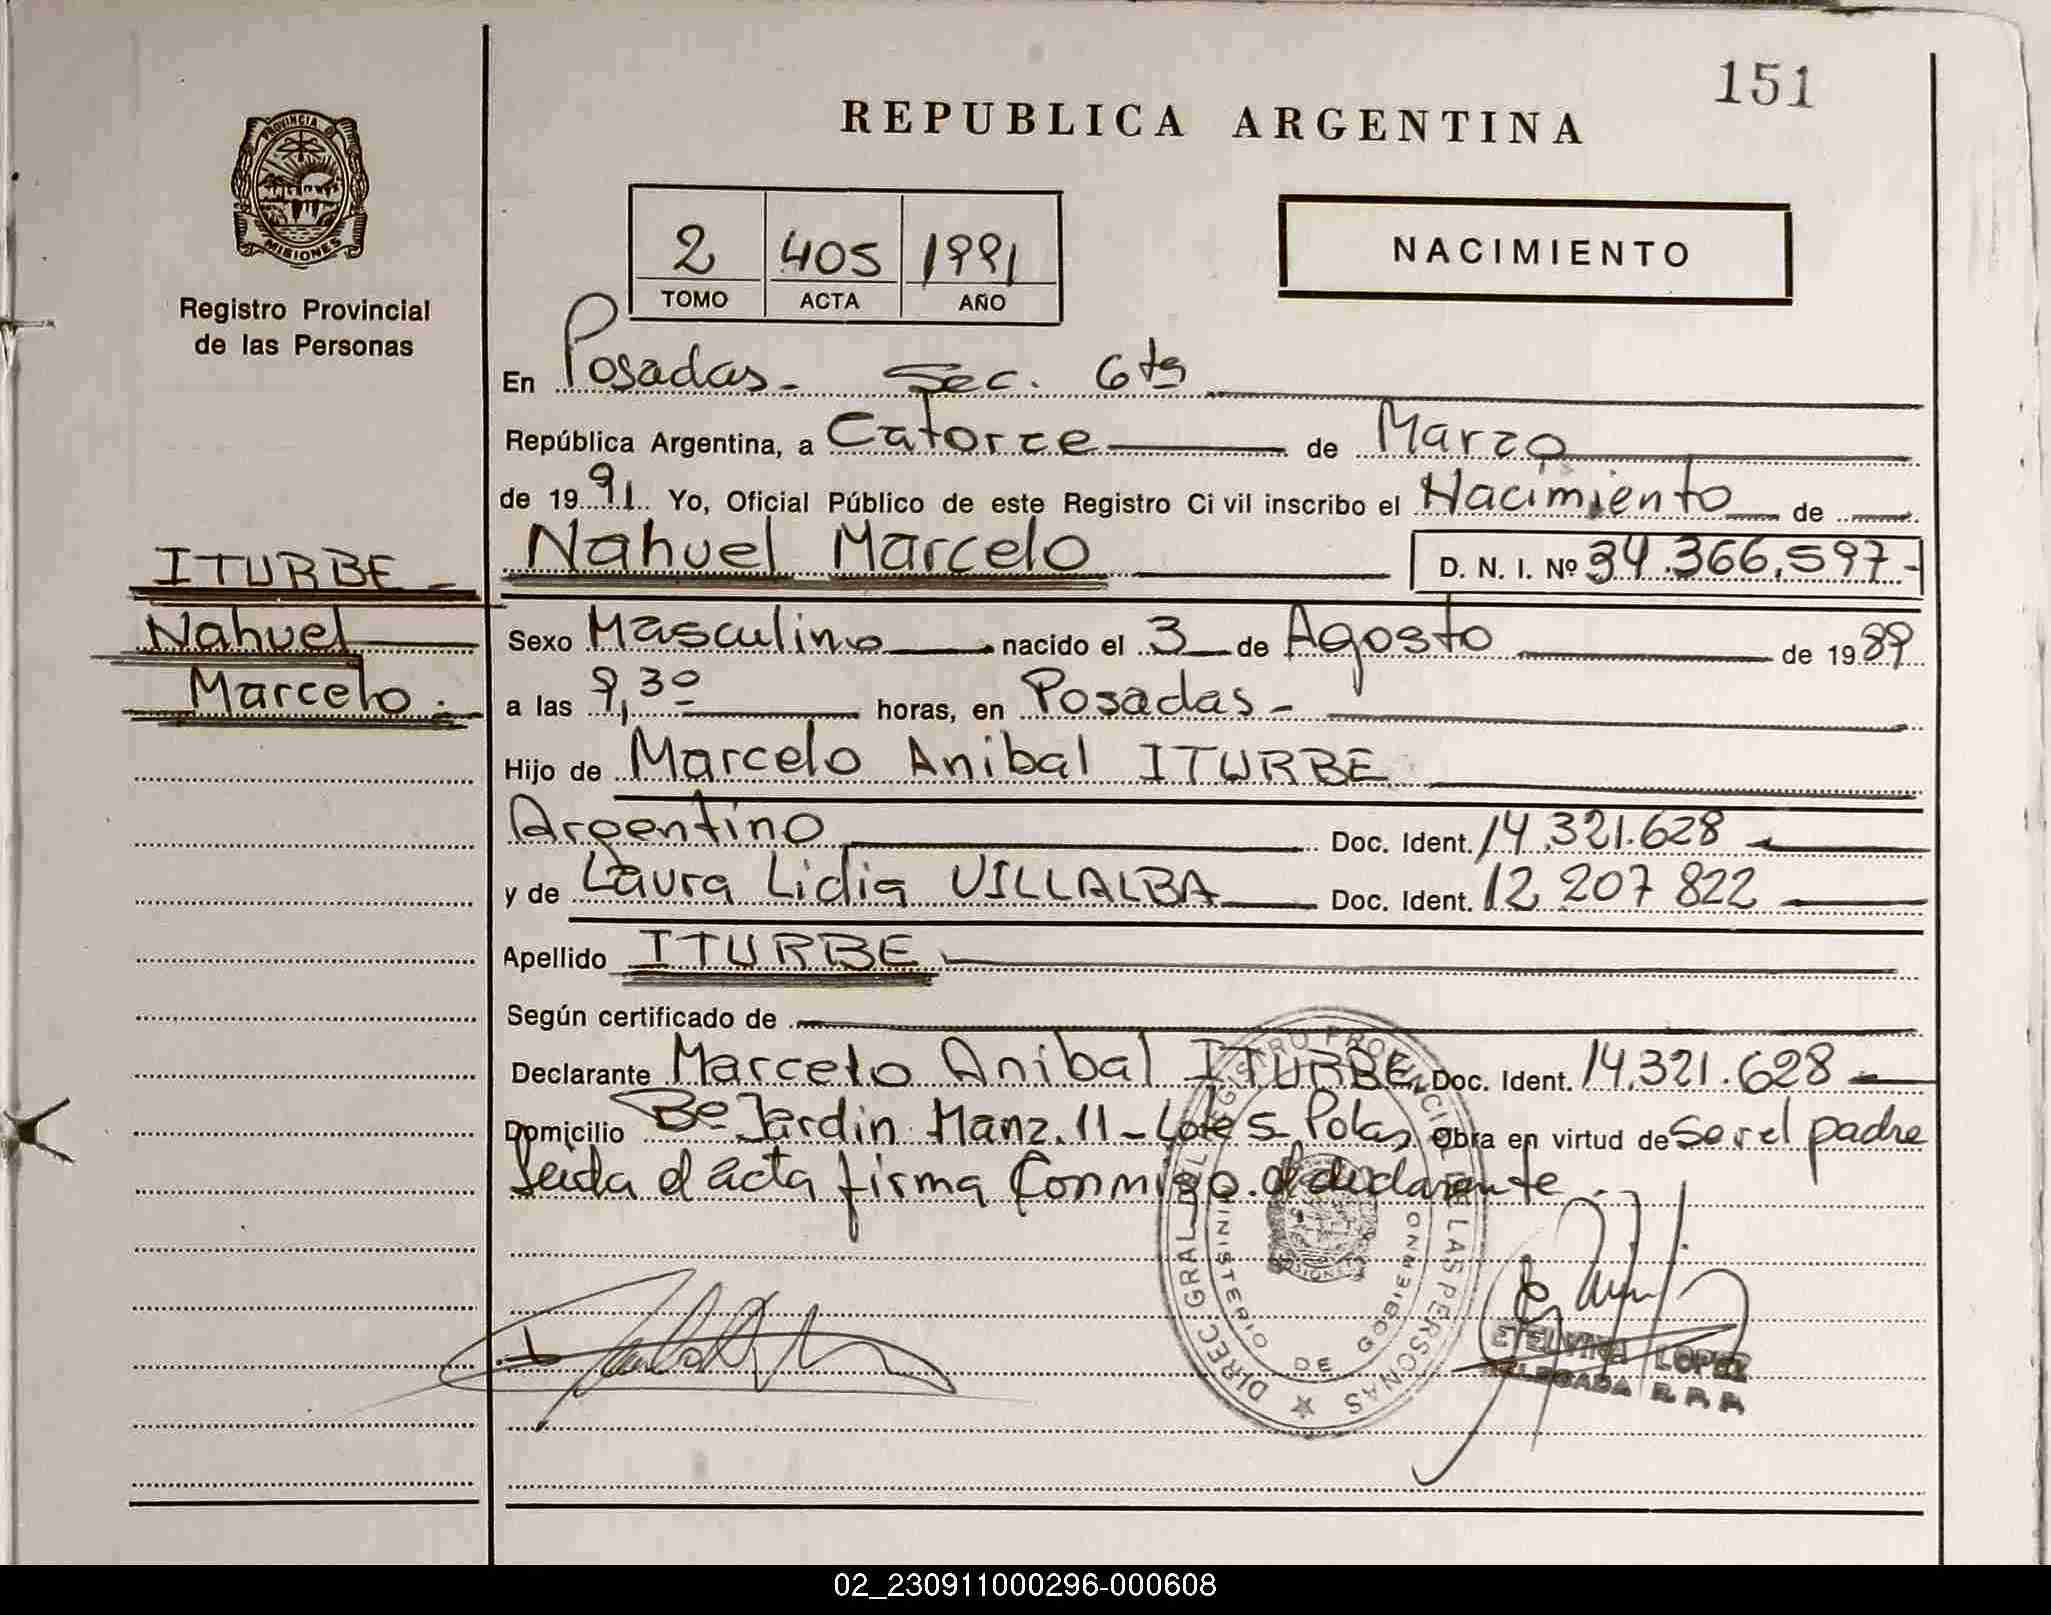 151
REPUBLICA ARGENTINA
PROVINCIA D
MISIONES
Registro Provincial
de las Personas
NACIMIENTO
2 405 1991
TOMO ACTA AÑO
En Posadas - Sec. 6ta
República Argentina, a Catorce de Marzo
de 1991. Yo, Oficial Público de este Registro Civil inscribo el Nacimiento de
ITURBE -
Nahuel
Marcelo.
Nahuel Marcelo D. N. I. Nº 34.366.597-
Sexo Masculino nacido el 3 de Agosto de 1989
a las 9,30 horas, en Posadas -
Hijo de Marcelo Anibal ITURBE
Argentino Doc. Ident. 14.321.628
y de Laura Lidia VILLALBA Doc. Ident. 12 207 822
Apellido ITURBE
Según certificado de
Declarante Marcelo Anibal ITURBE Doc. Ident. 14.321.628
Domicilio Bº Jardin Manz. 11 - Lote 5 Pdas. Obra en virtud de Ser el padre
Leida el acta firma Conmigo el declarante.
DIREC GRAL DEL REGISTRO PROVINCIAL DE LAS PERSONAS
MINISTERIO DE GOBIERNO
ETELVINA LOPEZ
DELEGADA R. P. P.
02_230911000296-000608